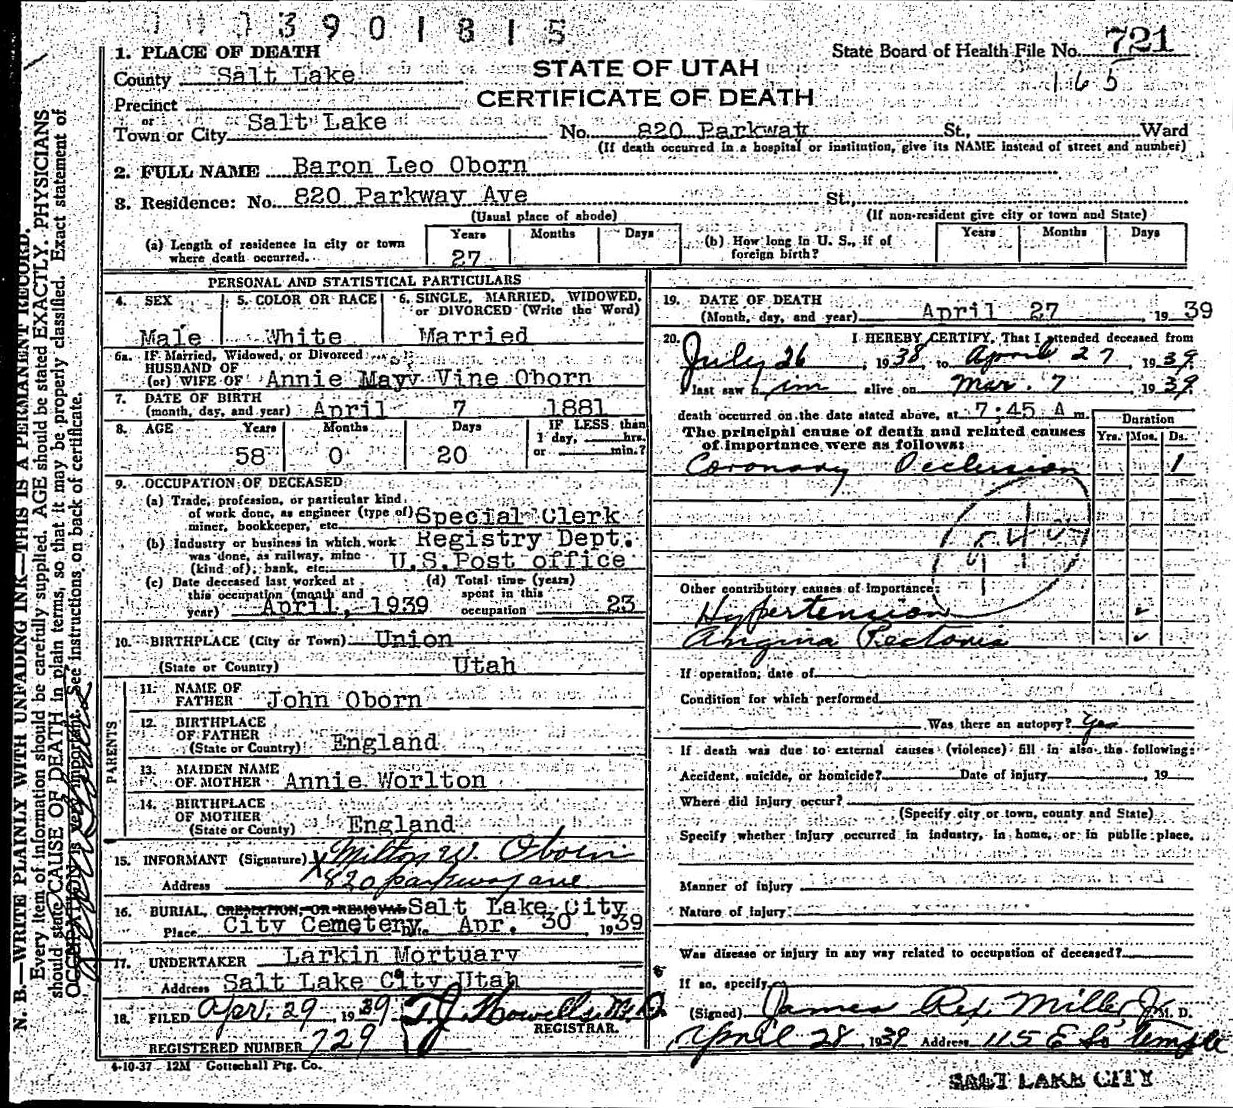 3 9 0 1 8 1 5
State Board of Health File No. 721
165
STATE OF UTAH
CERTIFICATE OF DEATH
1. PLACE OF DEATH
County Salt Lake
Precinct
or
Town or City Salt Lake No. 820 Parkwat St., Ward
(If death occurred in a hospital or institution, give its NAME instead of street and number)
2. FULL NAME Baron Leo Oborn
3. Residence: No. 820 Parkway Ave St.,
(Usual place of abode) (If non-resident give city or town and State)
(a) Length of residence in city or town where death occurred. Years 27 Months Days
(b) How long in U. S., if of foreign birth? Years Months Days
PERSONAL AND STATISTICAL PARTICULARS
4. SEX Male
5. COLOR OR RACE White
6. SINGLE, MARRIED, WIDOWED, or DIVORCED (Write the Word) Married
6a. IF Married, Widowed, or Divorced
HUSBAND OF
(or) WIFE OF Annie Mayv Vine Oborn
7. DATE OF BIRTH
(month, day, and year) April 7 1881
8. AGE Years 58 Months 0 Days 20 IF LESS than 1 day, hrs. or min.?
9. OCCUPATION OF DECEASED
(a) Trade, profession, or particular kind of work done, as engineer (type of) miner, bookkeeper, etc. Special Clerk
(b) Industry or business in which work was done, as railway, mine (kind of), bank, etc. Registry Dept. U.S.Post office
(c) Date deceased last worked at this occupation (month and year) April, 1939
(d) Total time (years) spent in this occupation 23
10. BIRTHPLACE (City or Town) Union
(State or Country) Utah
PARENTS
11. NAME OF FATHER John Oborn
12. BIRTHPLACE OF FATHER (State or Country) England
13. MAIDEN NAME OF MOTHER Annie Worlton
14. BIRTHPLACE OF MOTHER (State or Country) England
15. INFORMANT (Signature) X Milton W. Oborn
Address 820 parkway ave
16. BURIAL, CREMATION, OR REMOVAL Salt Lake City
Place City Cemetery Date Apr. 30, 1939
17. UNDERTAKER Larkin Mortuary
Address Salt Lake City Utah
18. FILED Apr. 29, 1939 T.J. Howells M.D.
REGISTRAR.
REGISTERED NUMBER 729
19. DATE OF DEATH
(Month, day, and year) April 27 1939
20. I HEREBY CERTIFY, That I attended deceased from
July 26, 1938, to April 27, 1939,
I last saw him alive on Mar. 7 1939
death occurred on the date stated above, at 7:45 A m.
The principal cause of death and related causes of importance were as follows:
Duration
Yrs. Mos. Ds.
Coronary Occlusion 1
Other contributory causes of importance:
Hypertension
Angina Pectoris
If operation, date of
Condition for which performed
Was there an autopsy? Yes
If death was due to external causes (violence) fill in also the following:
Accident, suicide, or homicide? Date of injury, 19
Where did injury occur?
(Specify city or town, county and State)
Specify whether injury occurred in industry, in home, or in public place.
Manner of injury
Nature of injury
Was disease or injury in any way related to occupation of deceased?
If so, specify
(Signed) James Rex Miller Jr. M. D.
April 28 1939 Address 115 E So Temple
SALT LAKE CITY
4-10-37 12M Gottschall Ptg. Co.
N. B.—WRITE PLAINLY WITH UNFADING INK—THIS IS A PERMANENT RECORD.
Every item of information should be carefully supplied. AGE should be stated EXACTLY. PHYSICIANS
should state CAUSE OF DEATH in plain terms, so that it may be properly classified. Exact statement of
OCCUPATION is very important. See instructions on back of certificate.